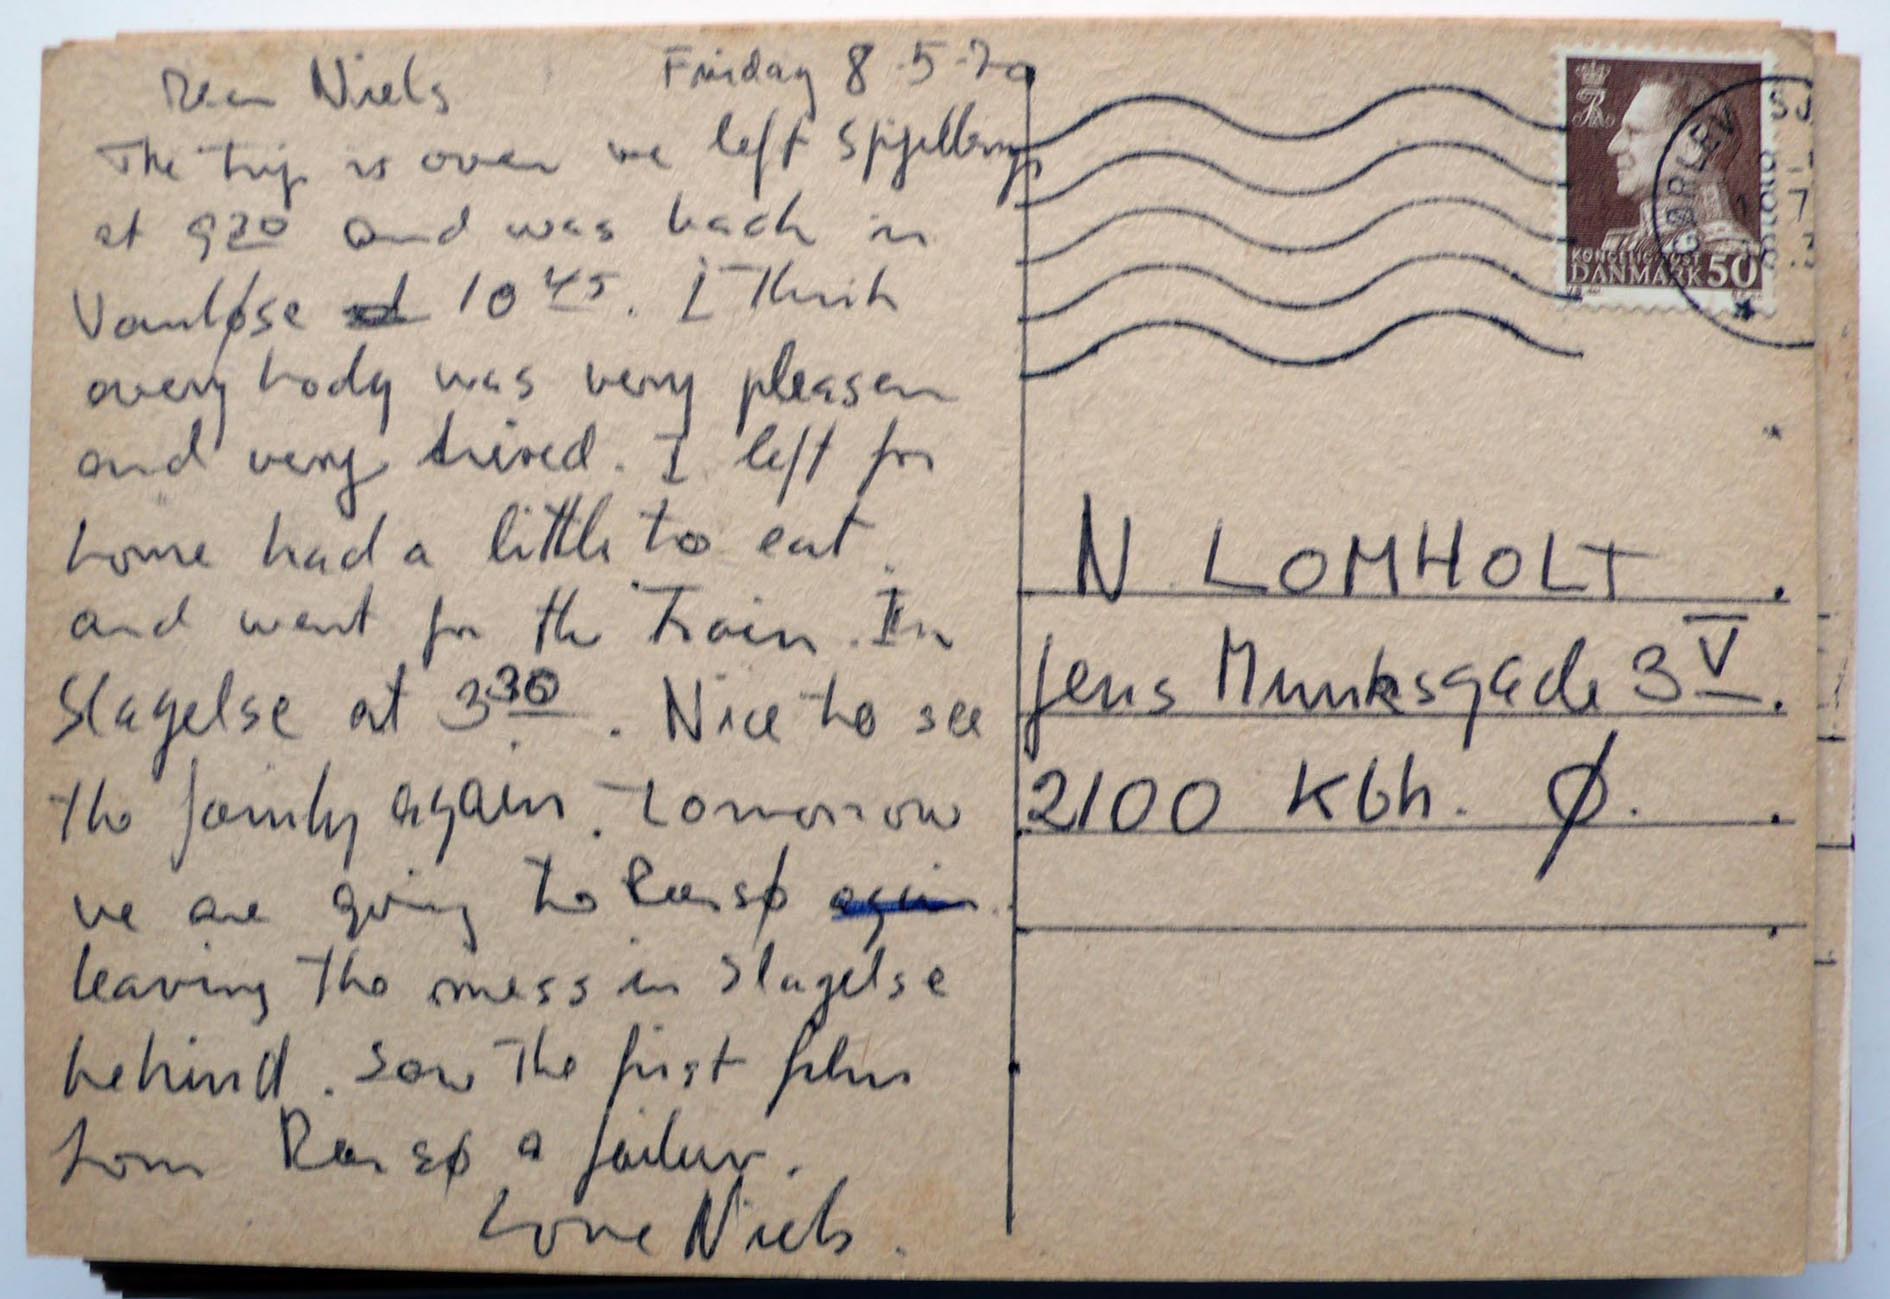 Dear Niels Friday 8.5.70
The trip is over we left Spjellerup
at 9 30 and was back in
Vanløse at 10 45. I think
every body was very pleasen
and very tired. I left for
home had a little to eat.
and went for the Train. In
Slagelse at 3 30. Nice to see
the family again. tomorrow
we are going to Reersø again.
leaving the mess in Slagelse
behind. Saw the first film
from Reersø a failure.
Love Niels.
KONGELIG POST
DANMARK 50
N LOMHOLT
Jens Munksgade 3 V.
2100 Kbh. Ø.